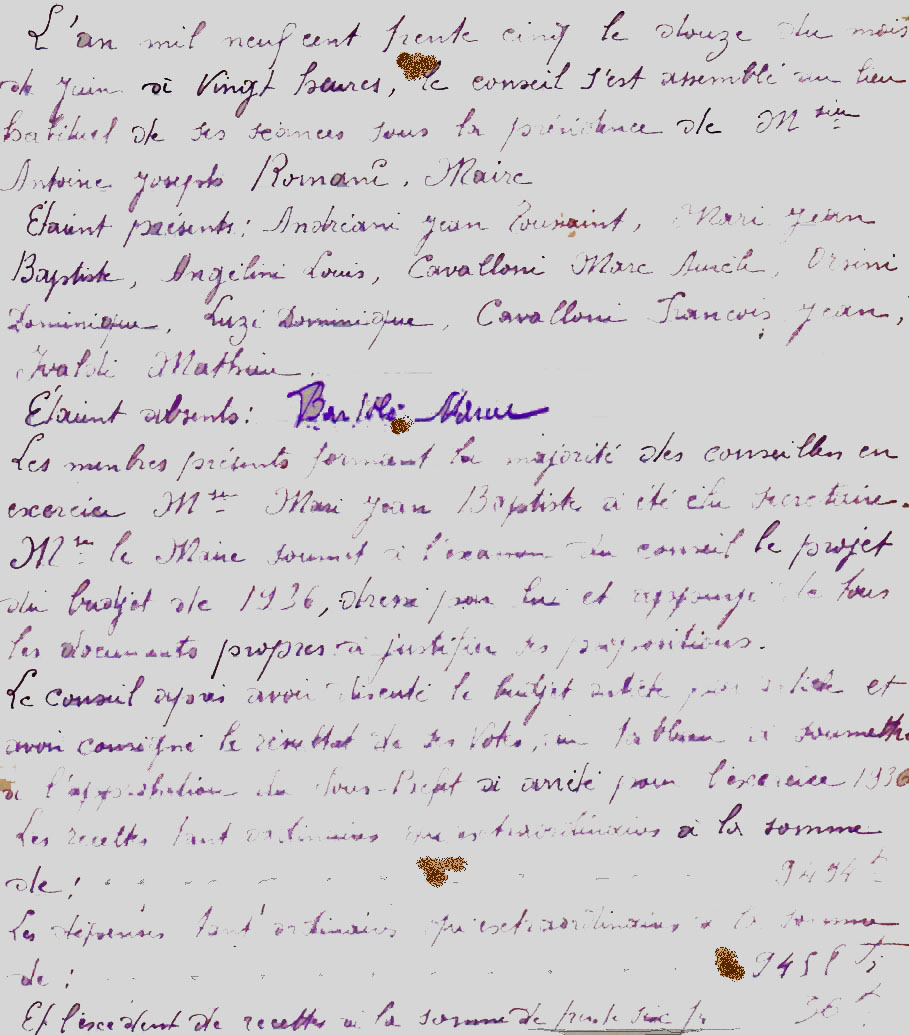 L'an mil neuf cent trente cinq le douze du mois
de Juin à Vingt heures, le conseil s'est assemblé au lieu
habituel de ses séances sous la présidence de M sieur
Antoine Joseph Romani, Maire
Etaient présents: Andréani Jean Toussaint, Mari Jean
Baptiste, Angelini Louis, Cavalloni Marc Aurèle, Orsini
Dominique, Luzi Dominique, Cavalloni François Jean,
Ivaldi Mathieu.
Etaient absents: Bartoli Marc
Les membres présents formant la majorité des conseillers en
exercice Mr Mari Jean Baptiste a été élu secretaire.
Mr le Maire soumet à l'examen du conseil le projet
du budjet de 1936, dressé par lui et appuyé de tous
les documents propres à justifier ses propositions.
Le conseil après avoir discuté le budjet article par article et
avoir consigné le résultat de ses votes, au tableau à soumettre
à l'approbation du Sous-Préfet a arrêté pour l'exercice 1936
Les recettes tant ordinaires qu'extraordinaires à la somme
de: 9494 f
Les dépenses tant ordinaires qu'extraordinaires à la somme
de: 9458 f
Et l'excédent de recettes à la somme de trente six fr 36 f